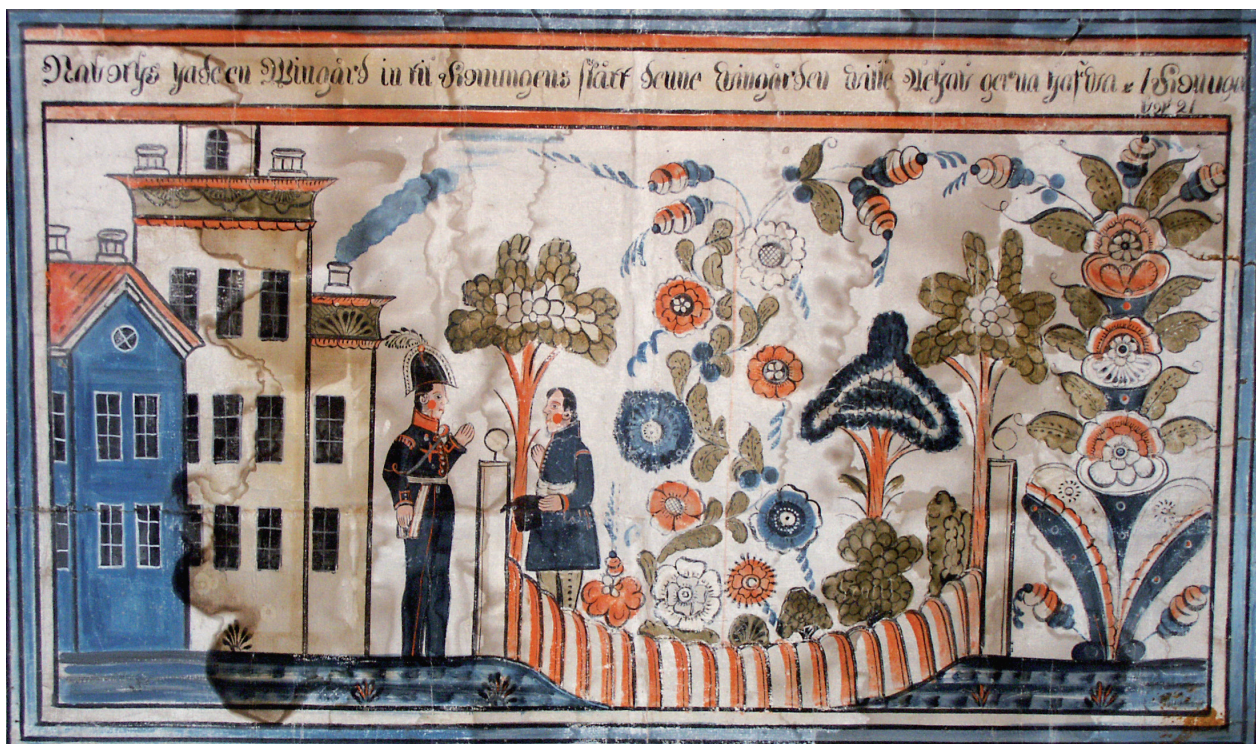 Naboths hade en Wingård in til Konungens slått denne Wingården wille Achab gerna hafwa 1 Konunga
Bok 21